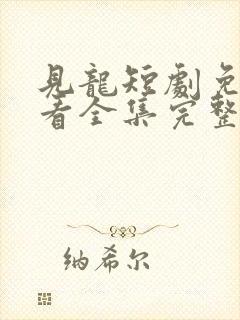 見龍短劇免
看全集完整
纳希尔